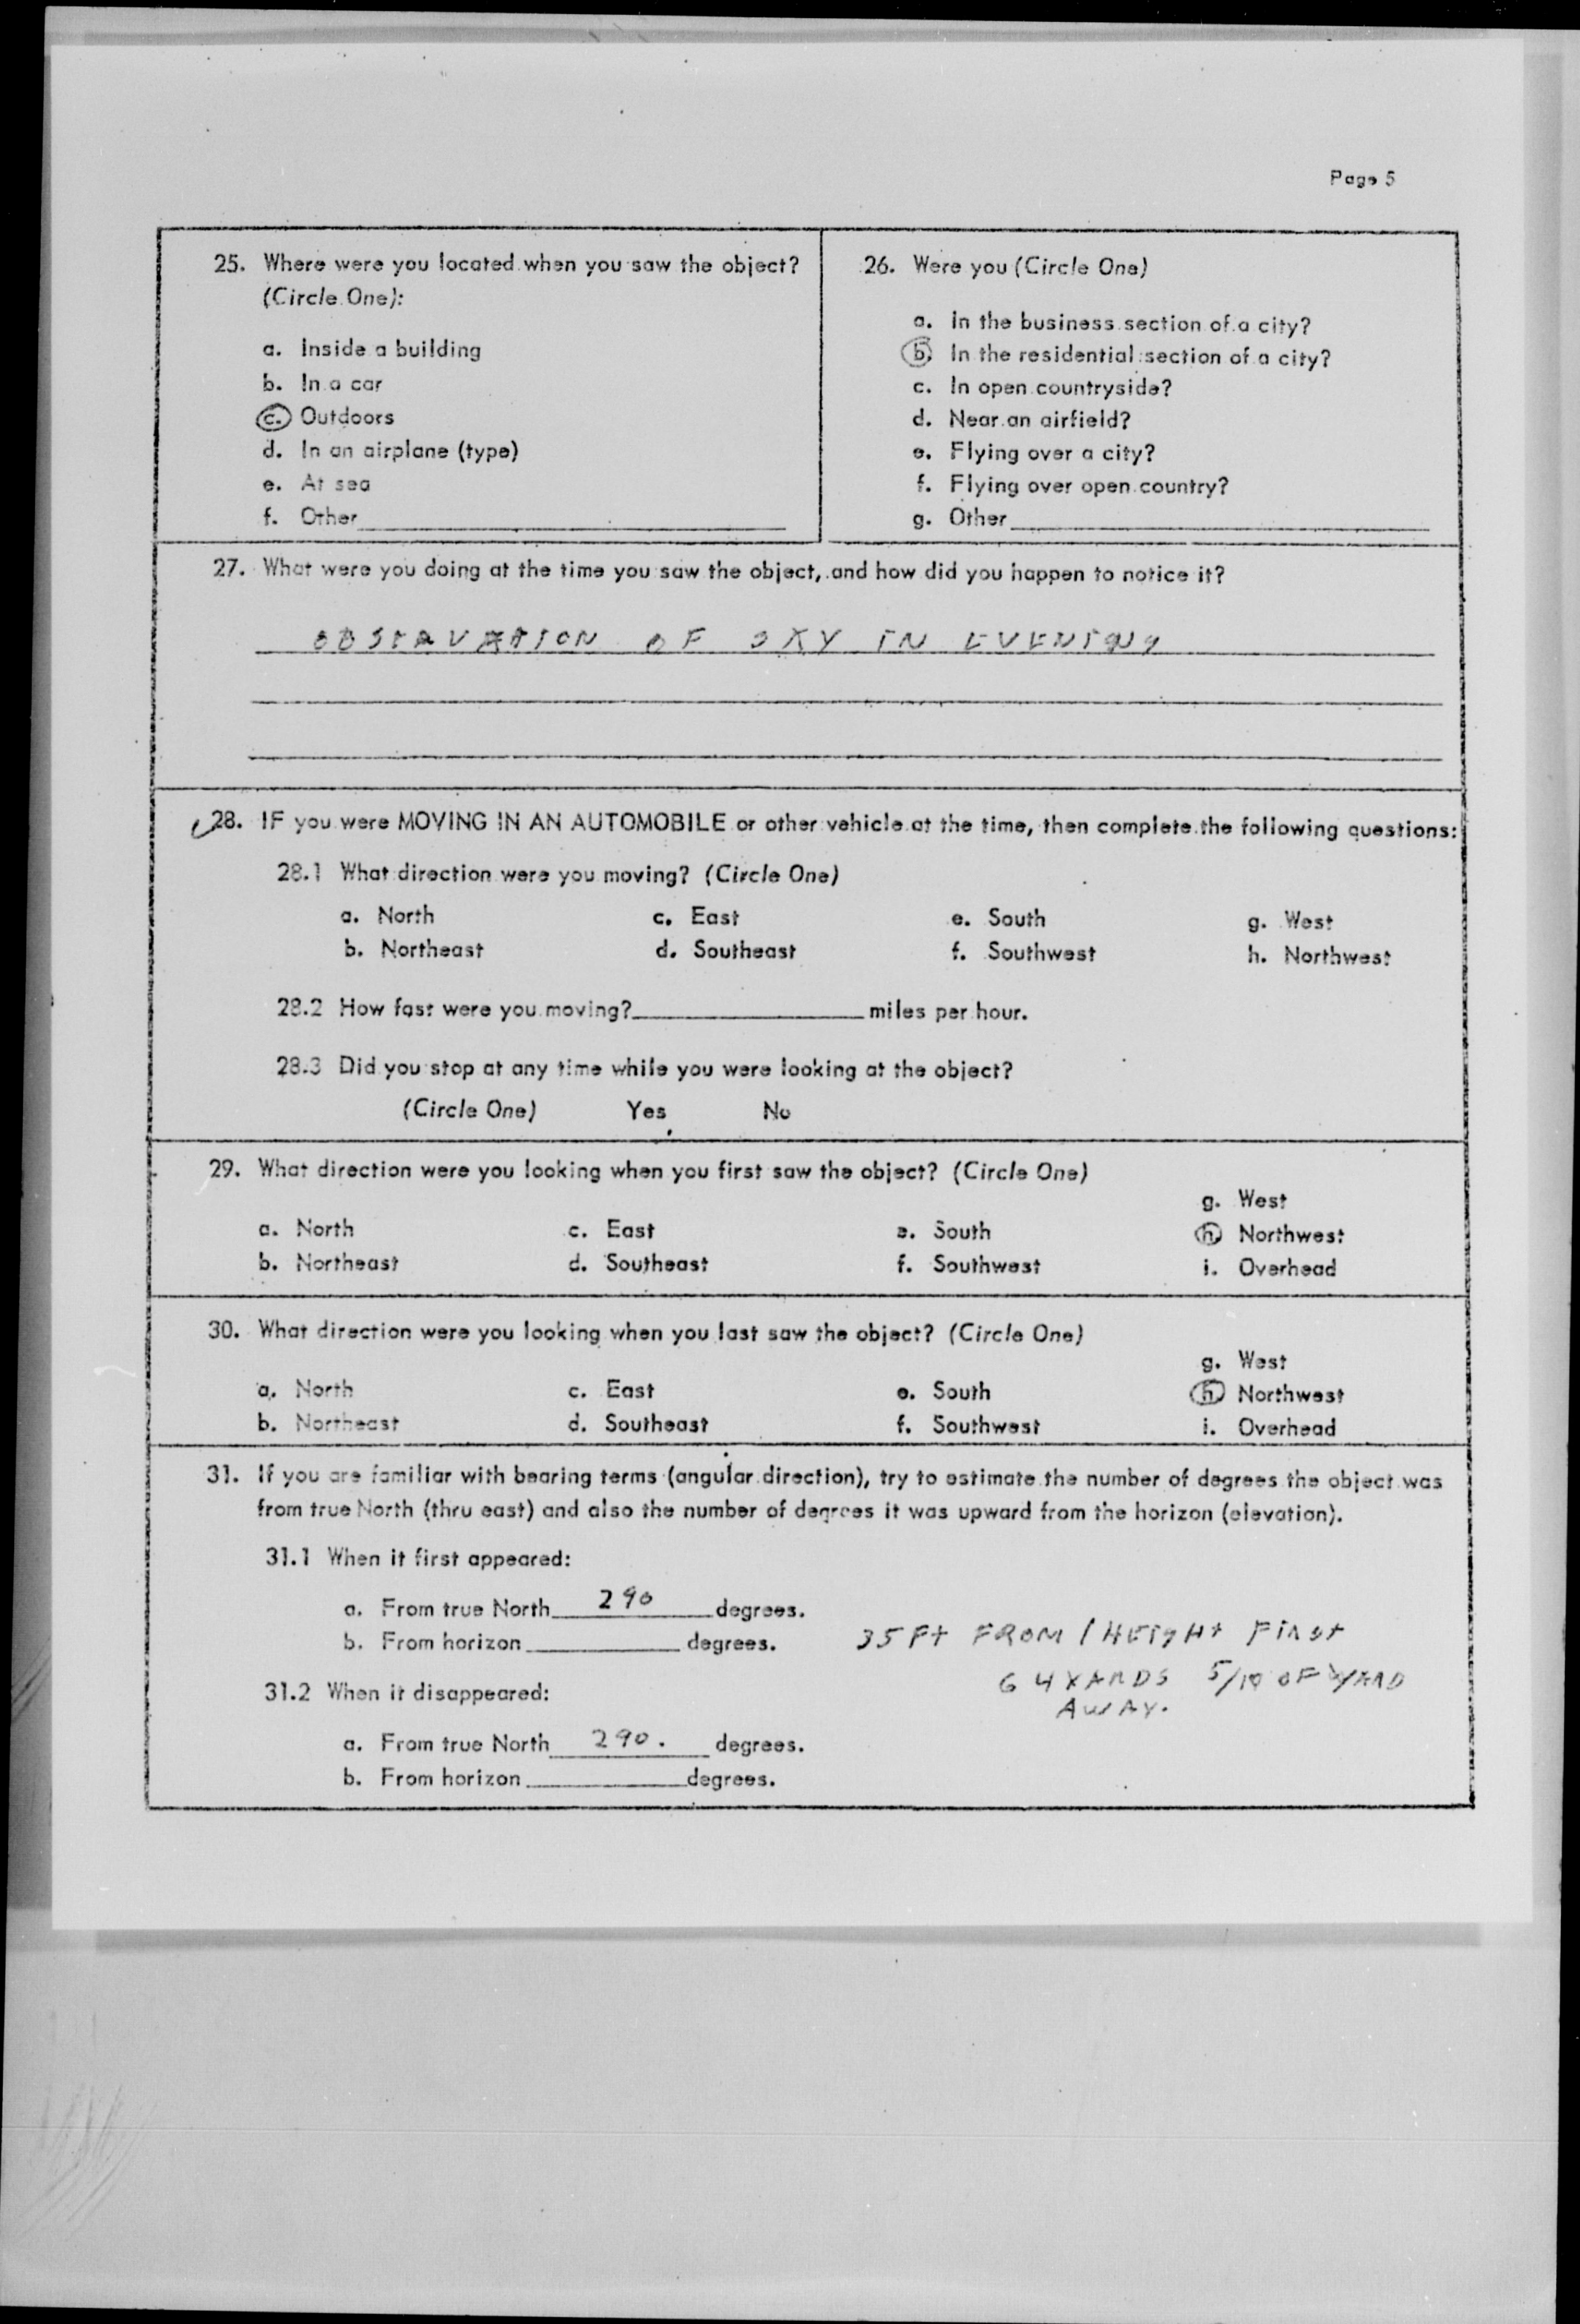 Page 5
25. Where were you located when you saw the object?
(Circle One):
a. Inside a building
b. In a car
c. Outdoors
d. In an airplane (type)
e. At sea
f. Other
26. Were you (Circle One)
a. In the business section of a city?
b. In the residential section of a city?
c. In open countryside?
d. Near an airfield?
e. Flying over a city?
f. Flying over open country?
g. Other
27. What were you doing at the time you saw the object, and how did you happen to notice it?
OBSERVATION OF SKY IN EVENING
28. IF you were MOVING IN AN AUTOMOBILE or other vehicle at the time, then complete the following questions:
28.1 What direction were you moving? (Circle One)
a. North c. East e. South g. West
b. Northeast d. Southeast f. Southwest h. Northwest
28.2 How fast were you moving? miles per hour.
28.3 Did you stop at any time while you were looking at the object?
(Circle One) Yes No
29. What direction were you looking when you first saw the object? (Circle One)
g. West
a. North c. East e. South h. Northwest
b. Northeast d. Southeast f. Southwest i. Overhead
30. What direction were you looking when you last saw the object? (Circle One)
g. West
a. North c. East e. South h. Northwest
b. Northeast d. Southeast f. Southwest i. Overhead
31. If you are familiar with bearing terms (angular direction), try to estimate the number of degrees the object was
from true North (thru east) and also the number of degrees it was upward from the horizon (elevation).
31.1 When it first appeared:
a. From true North 290 degrees.
b. From horizon degrees.
35 Ft FROM / HEIGHt FIRSt
64 YARDS 5/10 OF YARD
AWAY.
31.2 When it disappeared:
a. From true North 290. degrees.
b. From horizon degrees.